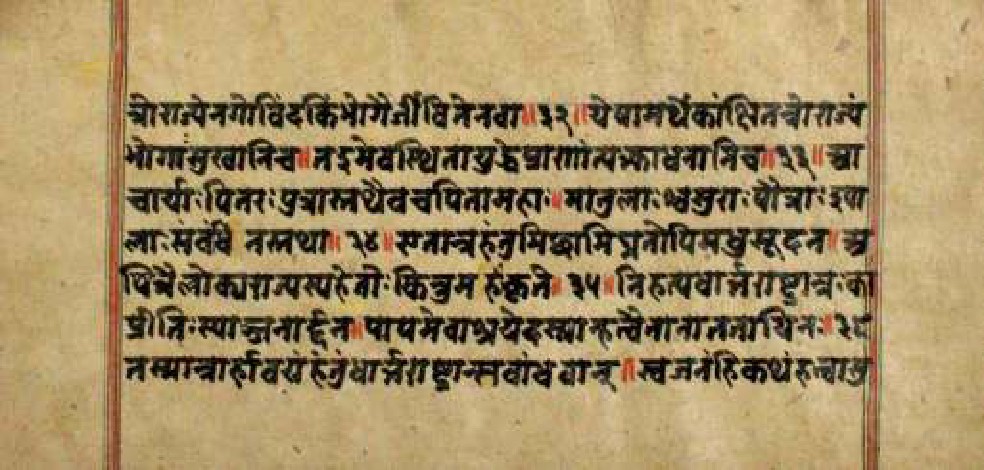 न्नोराज्येनगोविंदकिंभोगैर्जीवितेनवा॥३२॥येषामर्थेकांक्षितंनोराज्यं
भोगाःसुखानिच॥नइमेवस्थितायुद्धेप्राणांत्यक्त्वाधनानिच॥३३॥आ
चार्याःपितरःपुत्रास्तथैवचपितामहाः॥मातुलाःश्वशुराःपौत्राःश्या
लाःसंबंधिनस्तथा॥३४॥एतान्नहंतुमिछामिघ्नतोपिमधुसूदन॥अ
पित्रैलोक्यराज्यस्यहेतोःकिंनुमहीकृते॥३५॥निहत्यधार्त्तराष्ट्रान्नःका
प्रीतिःस्याज्जनार्द्दन॥पापमेवाश्रयेदस्मान्हत्वैतानाततायिनः॥३६
तस्मान्नार्हावयंहंतुंधार्त्तराष्ट्रान्सबांधवान्॥स्वजनंहिकथंहत्वासु